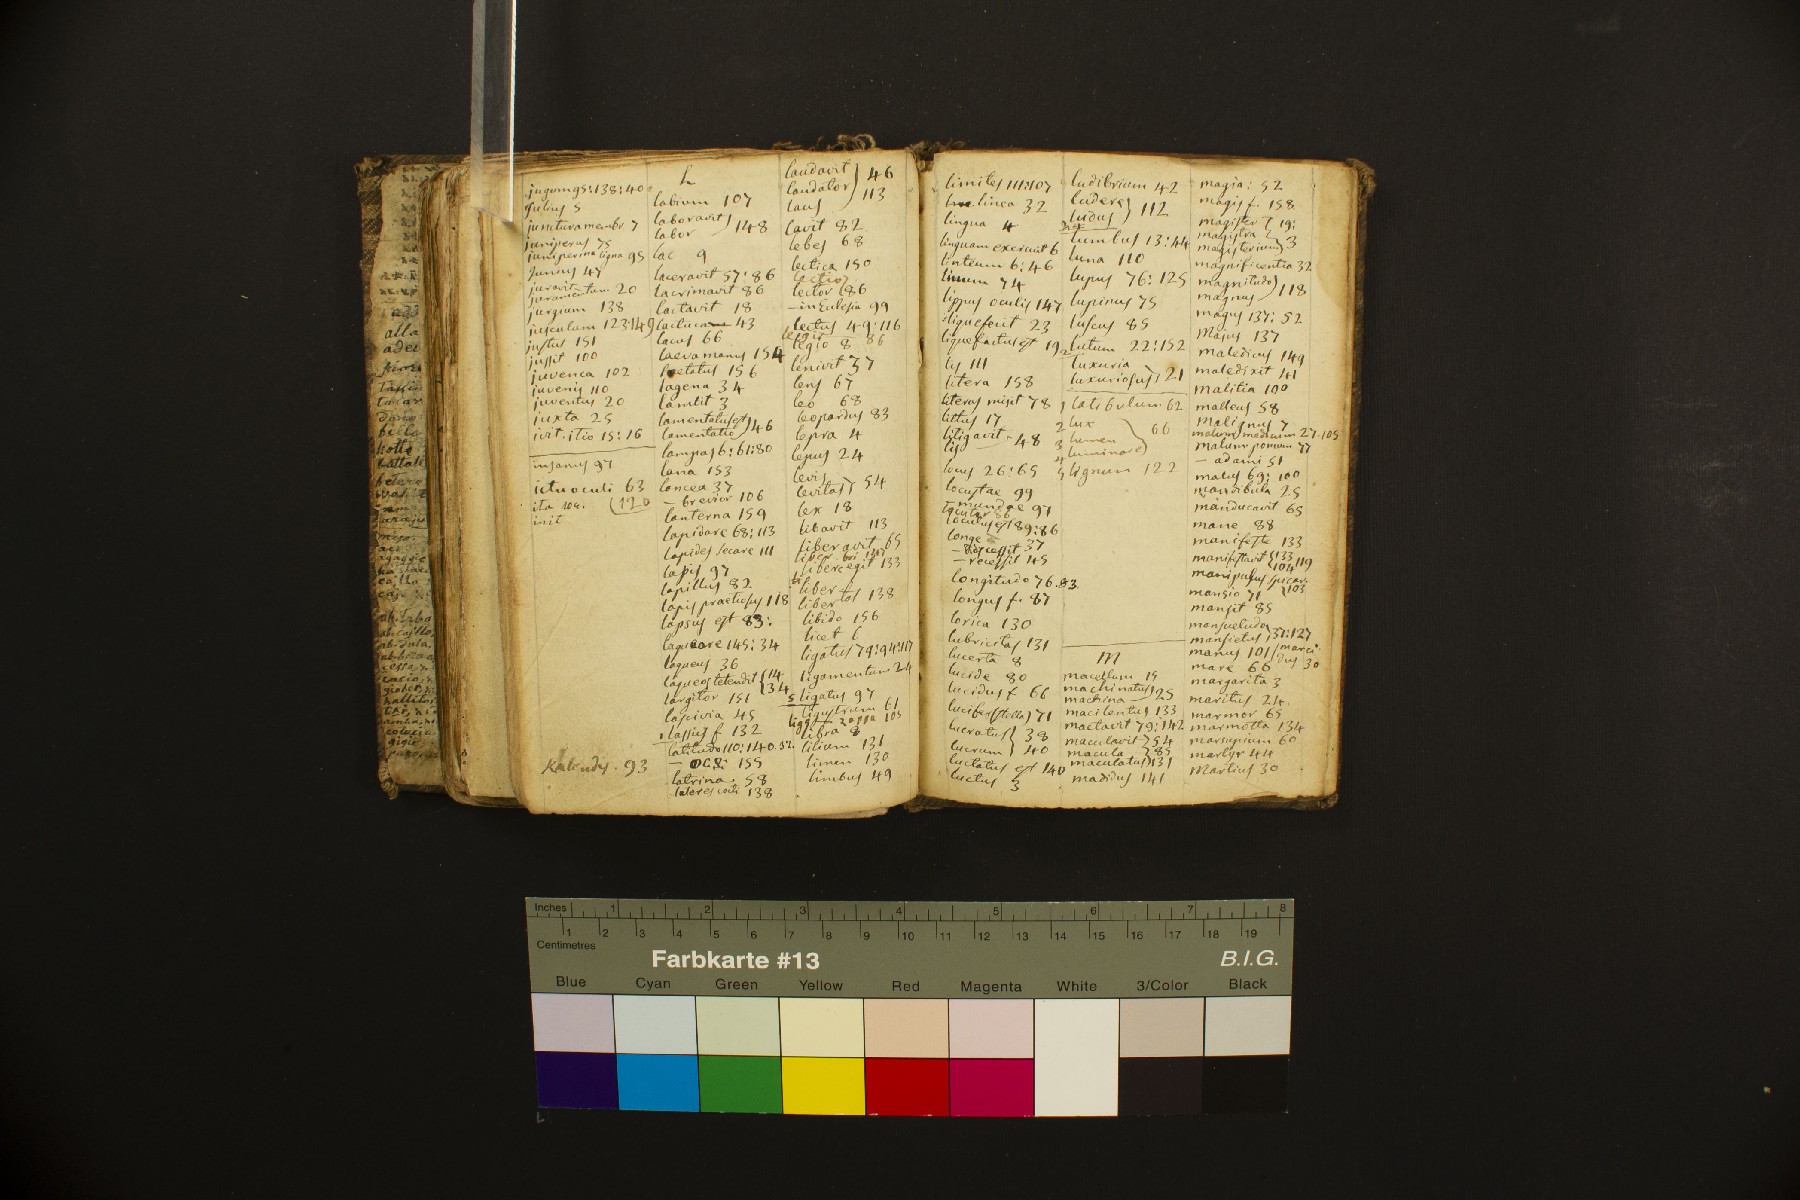 Julius 5
juniperus 75
Junius 47
juravit
juramentum 20
jurgium 138
jusculum 123:149
justus 151
jussit 100
juvenca 102
juvenis 110
juventus 20
juxta 25
insanus 97
ictu oculi 63
ita 102.
120
init
Kalendis. 93
L
labium 107
laboravit
labor 148
lac 9
laceravit 57:86
lacrimavit 86
lactavit 18
lactuca 43
lacus 66
laeva manus 154
laetatus 156
lagena 34
lambit 3
lamentatus est
lamentatio 46
lampas 6:61:80
lana 153
lancea 37
– brevior 106
lanterna 159
lapidare 68:113
lapides secare 111
lapis 97
lapillus 82
lapis praetiosus 118
lapsus est 83:
laqueare 145:34
laqueus 36
laqueos tetendit 14
34
largitor 151
lascivia 45
lassus f. 132
latitudo 110:140.52.
latrina. 58
lateres 138
laudavit 46
laudator
laus 113
lavit 82
lebes 68
lectica 150
lectio
lector 86
– in Eclesia 99
lectus 4-9:116
legio 8 86
lenivit 37
lens 67
leo 68
leopardus 83
lepra 4
lepus 24
levis
levitas 54
lex 18
libavit 113
liberavit 65
liber egit 133
liber f.
liber tas 138
libido 156
licet 6
ligatus 79:94:117
ligamentum 24
5 ligatus 97
ligustrum 61
libra 8
lilium 131
limen 130
limbus 49
limites 111:107
linea 32
lingua 4
linguam exeruit 6
linteum 6:46
linum 74
lippus oculis 147
liquefecit 23
liquefactus est 19
lis 111
litera 158
literas misit 78
littus 17
litigavit 48
lis
locus 26:65
locustae 99
– mundae 97
locutus est 89:86
longe
– discessit 37
– recessit 45
longitudo 76.83
longus f. 87
lorica 130
lubricitas 131
lucerta 8
lucide 80
lucidus f. 66
lucifer (stella) 71
lucratus 38
lucrum 40
luctatus est 140
luctus 3
ludibrium 42
ludere
ludus 112
lumbus 13:44
luna 110
lupus 76:125
lupinus 75
luscus 85
lutum 22:152
luxuria
luxuriosus 21
1 latibulum 62
2 lux 66
3 lumen
4 luminare
5 lignum 122
M
macellum 15
machinatus 25
machina
macilentus 133
mactavit 79:142
maculavit 54
macula 85
maculatus 131
madidus 141
magia: 52
magis f. 158
magister 19:
magistra
magisterium 3
magnificentia 32
magnitudo
magnus 118
magus 137:52
Majus 137
maledicus 149
maledixit 41
malitia 100
malleus 58
malignus 7
malum medicum 27.105
malum pomum 77
– adami 51
malus 69:100
mandibula 25
manducavit 65
mane 88
manifeste 133
manifestavit 133 119
104
manipulus spicar.
103
mansio 71
mansit 85
mansuetudo
mansuetus 37:127
manus 101
mare 66
margarita 3
maritus 24.
marmor 65
marmotta 134
marsupium 60
martyr 44
Martius 30
Inches 1 2 3 4 5 6 7 8
1 2 3 4 5 6 7 8 9 10 11 12 13 14 15 16 17 18 19
Centimetres
Farbkarte #13 B.I.G.
Blue Cyan Green Yellow Red Magenta White 3/Color Black